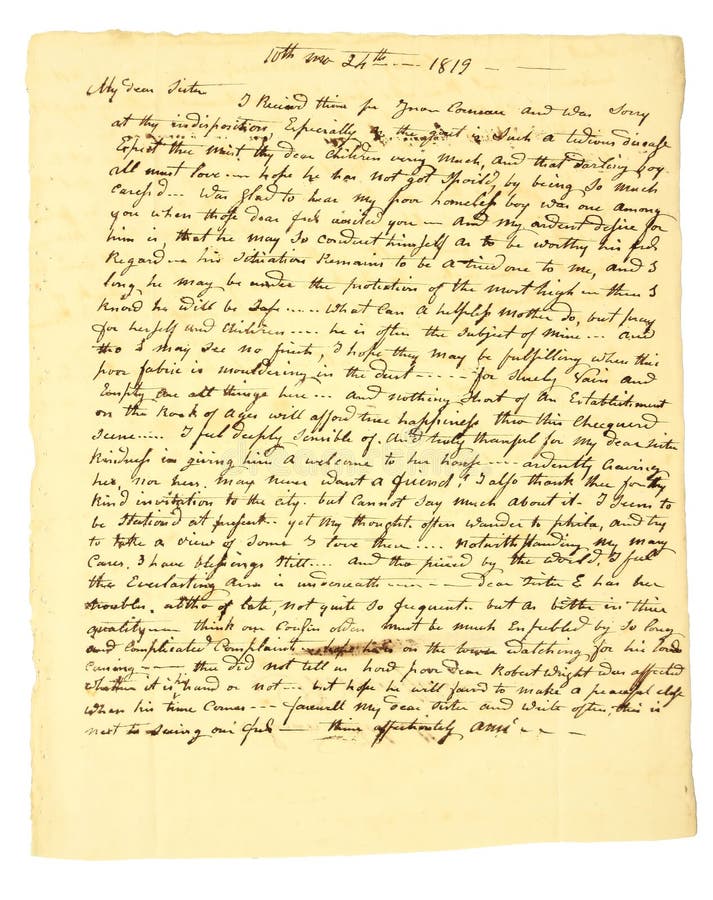 10th mo 24th — 1819 —
My dear Sister
I Recievd thine and was Sorry
at thy indisposition, Especially as the gout is Such a tedious disease
Expect thee mist thy dear Children very much, and that darling boy
all must love — hope he has not got Spoild, by being So much
Caress'd — Was Glad to hear my poor homeless boy was one among
you when those dear frds visited you — And my ardent desire for
him is, that he may So conduct himself as to be worthy his frds
Regard — his Situation Remains to be a tried one to me, and I
long he may be under the protection of the most high — then I
know he will be Safe ..... What can a helpless mother do, but pray
for herself and Children .... he is often the Subject of mine ... and
tho I may See no fruit, I hope they may be fulfilling when this
poor fabric is mouldering in the dust - - - - - for Surely Vain and
Empty are all things here ... And nothing Short of An Establishment
on the Rock of Ages will afford true happiness thro this Checquerd
Scene .... I feel deeply Sensible of. And truly thankful for my dear Sister
kindness in giving him A welcome to her house .... ardently Craving
her, nor hers, may never want a friend! I also thank thee for thy
kind invitation to the city. but Cannot say much about it. I Seem to
be Stationd at present.. yet my thoughts often wander to phila, and try
to take a view of Some I love there .... Notwithstanding my many
Cares, I have blessings Still .... And tho by the World, I feel
the Everlasting Arm is underneath - - - - dear Sister E has her
troubles, altho of late, not quite So frequent.. but as bitter in their
quality — think our Cousin must be much Enfeebled by So long
and Complicated Complaint.. hope he is on the tower Watching for his Lords
coming - - - thee did not tell us how poor Dear Robert Wright was affected
whether it is his hand or not - - but hope he will favrd to make a peaceful close
When his time Comes - - - farewell my dear Sister and write often, this is
next to Seeing our frds — thine affectionately Ann